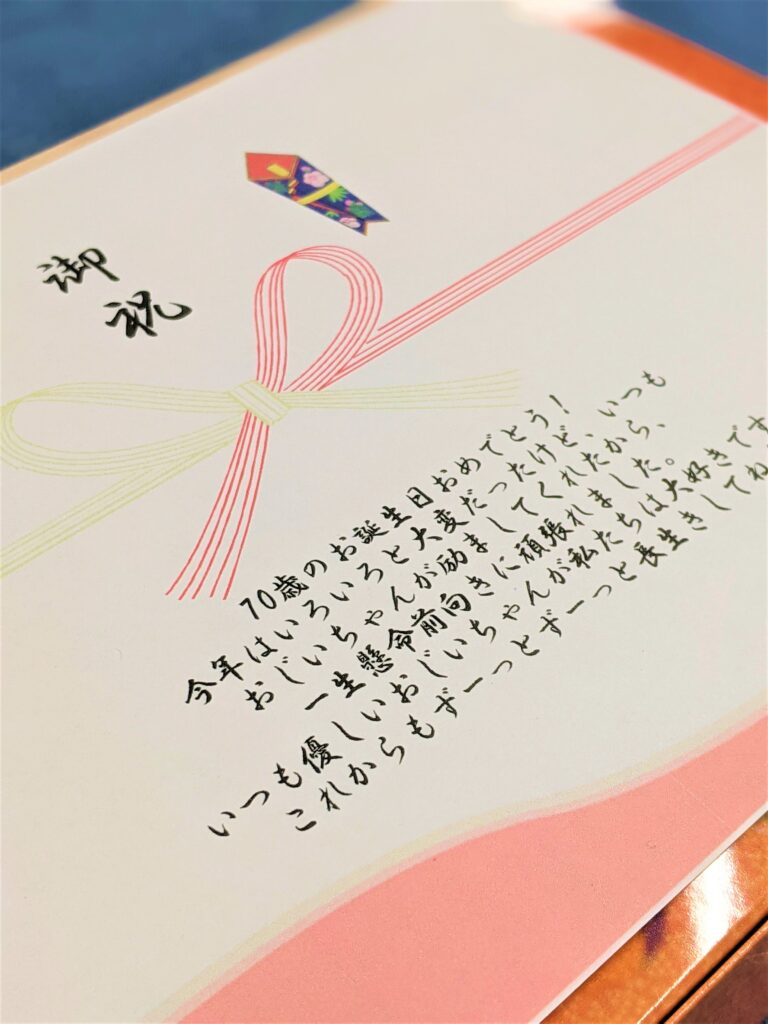 御祝
70歳のお誕生日おめでとう!
今年はいろいろと大変だったけど、いつも
おじいちゃんが励ましてくれたから、
一生懸命前向きに頑張れました。
いつも優しいおじいちゃんが私たちは大好きです
これからもずーっとずーっと長生きしてね